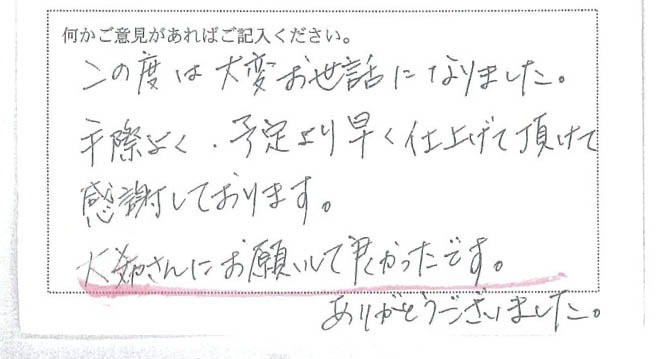 何かご意見があればご記入ください。
この度は大変お世話になりました。
手際よく、予定より早く仕上げて頂けて
感謝しております。
さんにお願いして良かったです。
ありがとうございました。